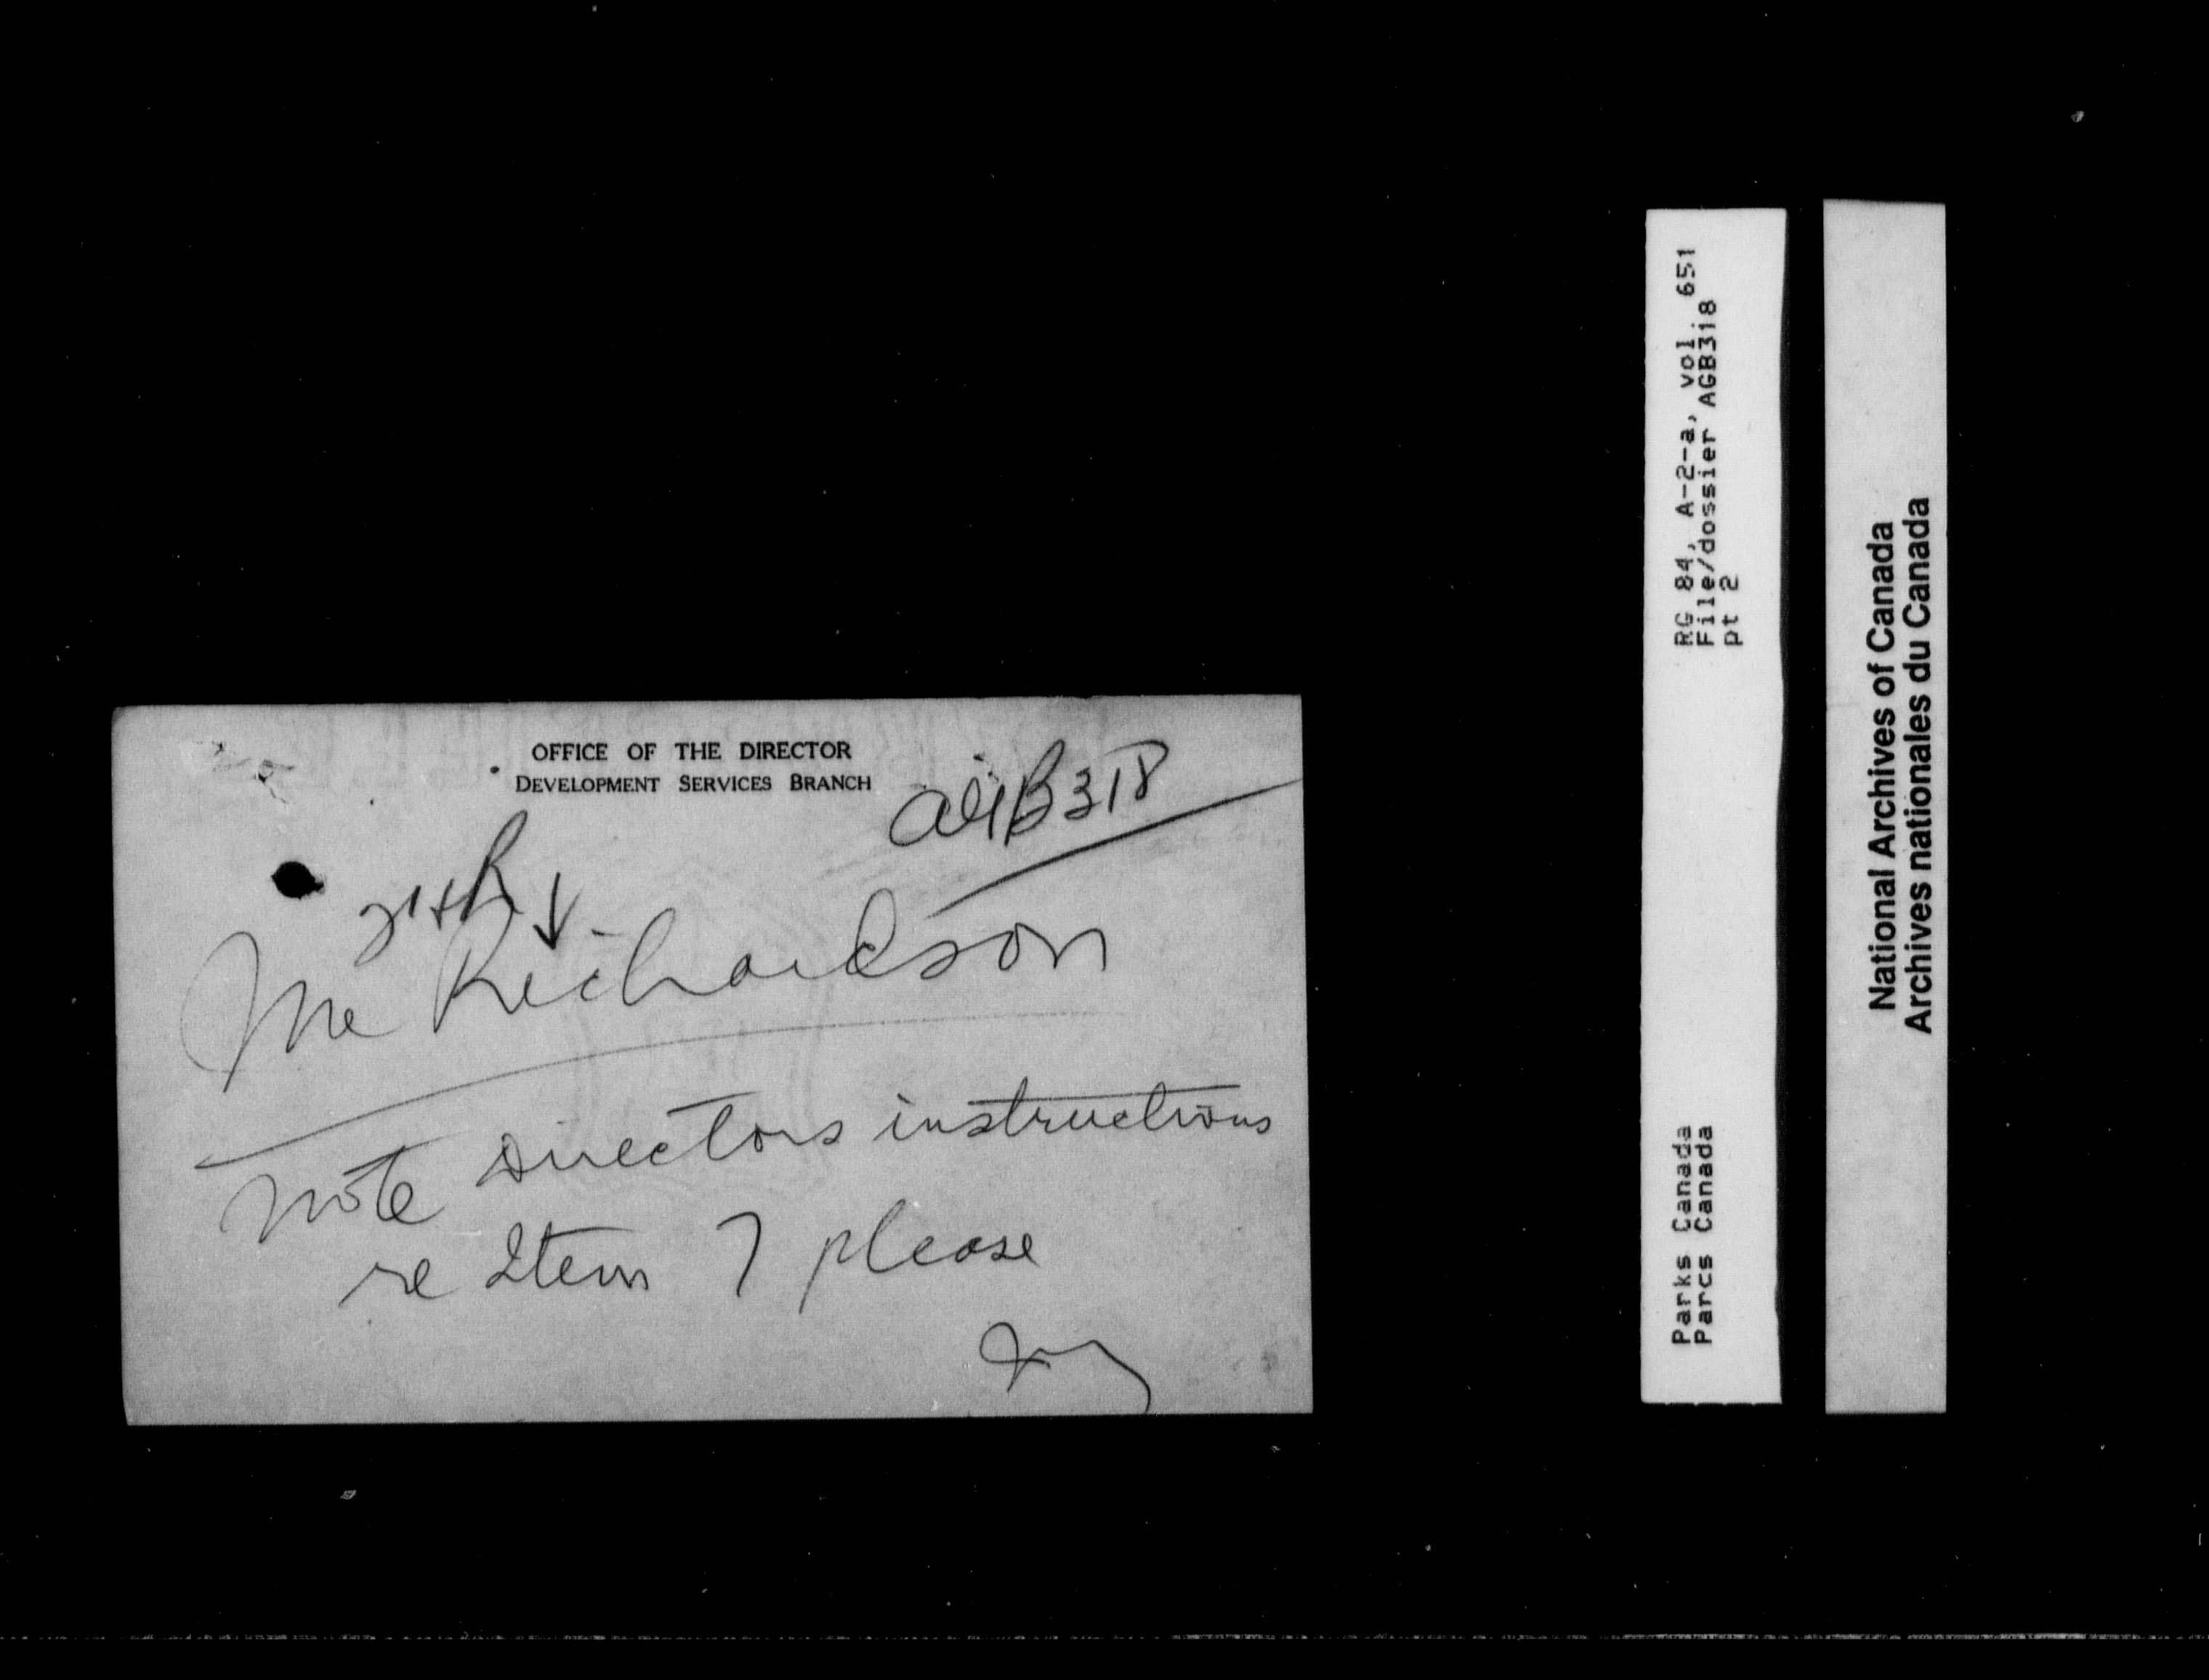 OFFICE OF THE DIRECTOR
DEVELOPMENT SERVICES BRANCH
AGB318
Mr Richardson
Note Directors instructions
re Item 7 please
RG 84, A-2-a, vol. 651
File/dossier AGB318
pt 2
Parks Canada
Parcs Canada
National Archives of Canada
Archives nationales du Canada